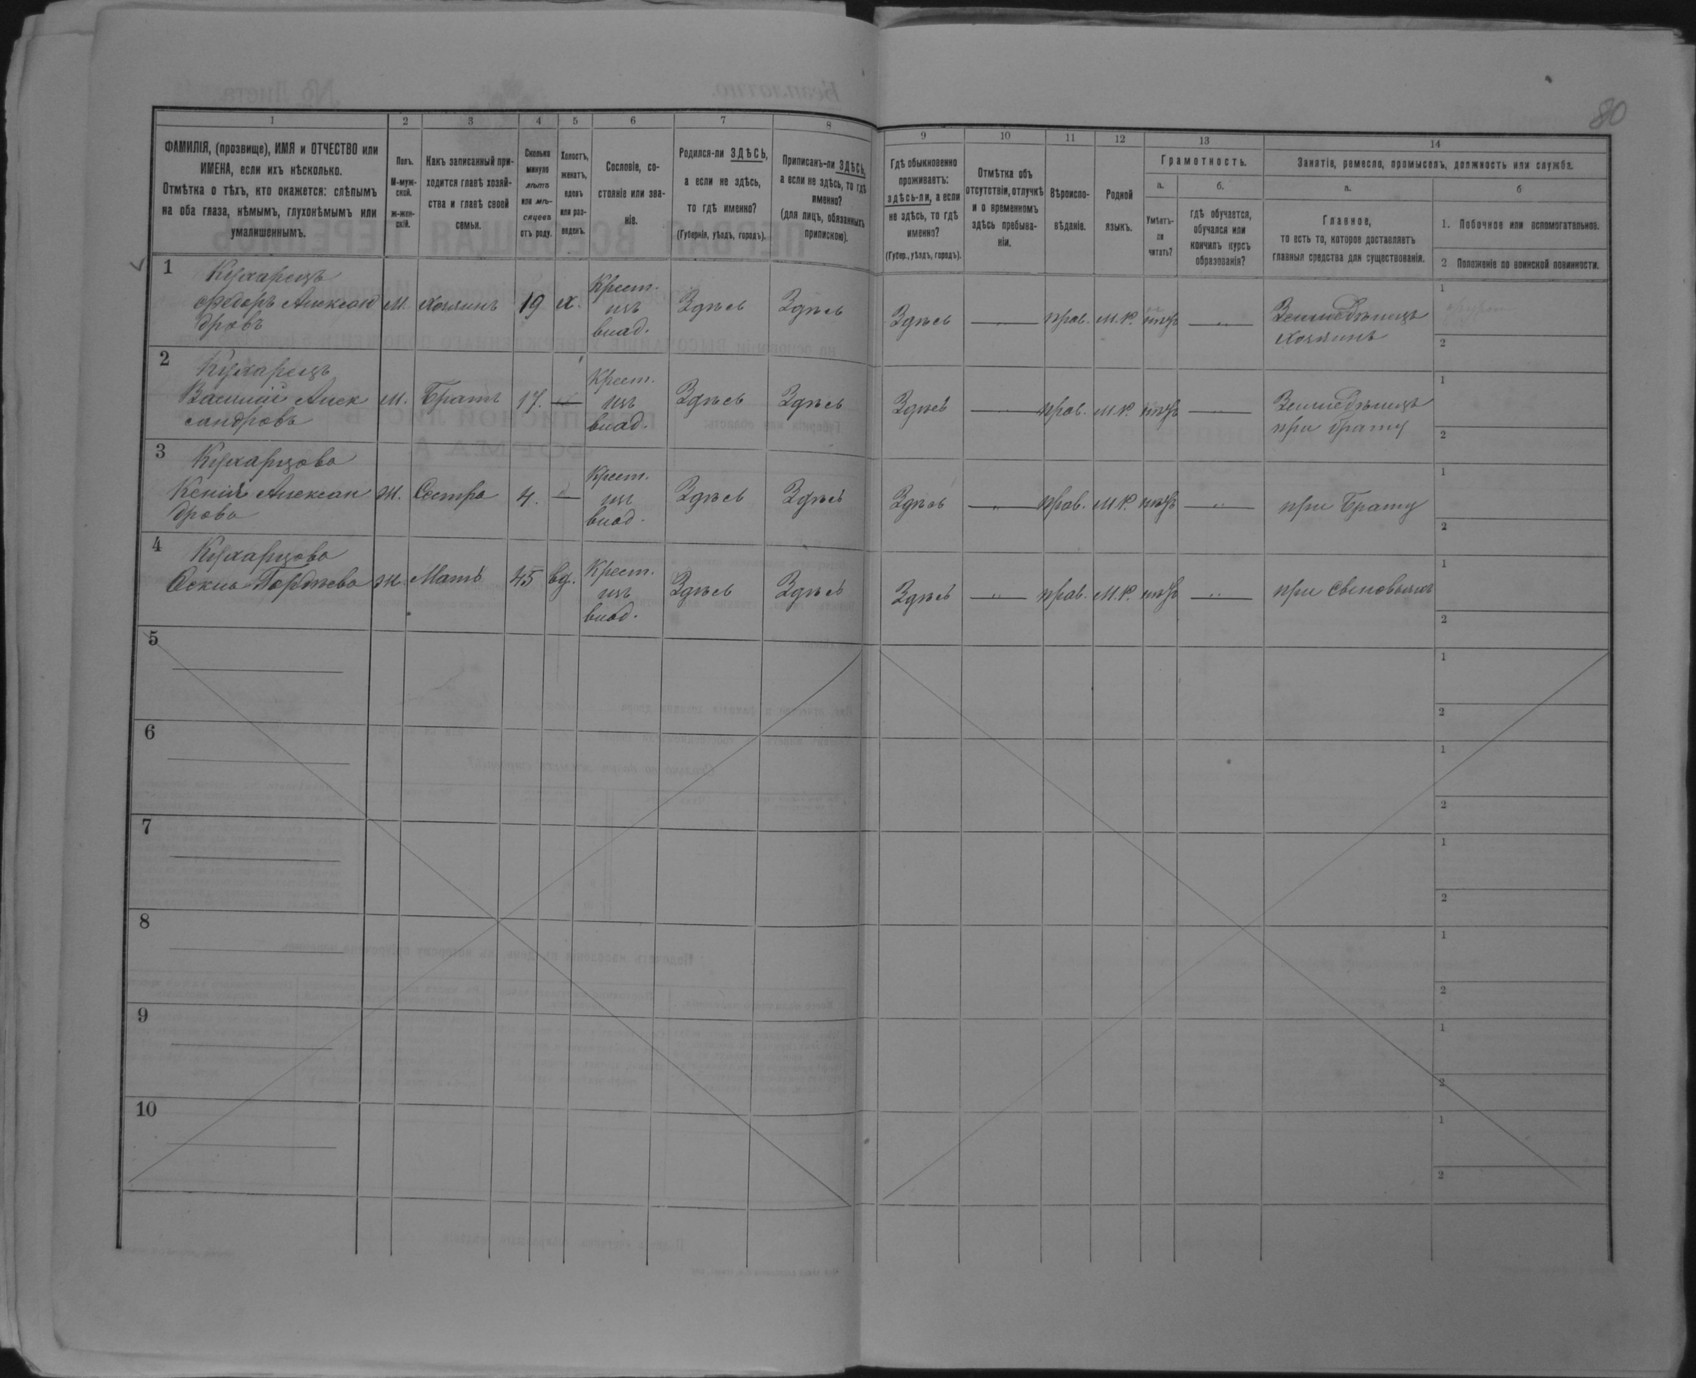 80
1 2 3 4 5 6 7 8 9 10 11 12 13 14
ФАМИЛІЯ, (прозвище), ИМЯ и ОТЧЕСТВО или
ИМЕНА, если ихъ нѣсколько.
Отмѣтка о тѣхъ, кто окажется: слѣпымъ
на оба глаза, нѣмымъ, глухонѣмымъ или
умалишеннымъ.
Полъ.
М-муж-
ской.
ж-жен-
скій.
Какъ записанный при-
ходится главѣ хозяй-
ства и главѣ своей
семьи.
Сколько
минуло
лѣтъ
или мѣ-
сяцевъ
отъ роду.
Холостъ,
женатъ,
вдовъ
или раз-
веденъ.
Сословіе, со-
стояніе или зва-
ніе.
Родился-ли ЗДѢСЬ,
а если не здѣсь,
то гдѣ именно?
(Губернія, уѣздъ, городъ).
Приписанъ-ли ЗДѢСЬ,
а если не здѣсь, то гдѣ
именно?
(для лицъ, обязанныхъ
припискою).
Гдѣ обыкновенно
проживаетъ:
здѣсь-ли, а если
не здѣсь, то гдѣ
именно?
(Губер., уѣздъ, городъ).
Отмѣтка объ
отсутствіи, отлучкѣ
и о временномъ
здѣсь пребыва-
ніи.
Вѣроиспо-
вѣданіе.
Родной
языкъ.
Грамотность.
а.
Умѣетъ-
ли
читать?
б.
гдѣ обучается,
обучался или
кончилъ курсъ
образованія?
Занятіе, ремесло, промыселъ, должность или служба.
а.
Главное,
то есть то, которое доставляетъ
главныя средства для существованія.
б
1. Побочное или вспомогательное.
2 Положеніе по воинской повинности.
1
Кухарецъ
Федоръ Александ
ровъ
М. Хозяинъ 19 х.
Крест.
изъ
влад.
Здѣсь Здѣсь Здѣсь — " — прав. М.Р. нѣтъ — " —
Земледѣлецъ
Хозяинъ
1
2
2
Кухарецъ
Василій Алек
сандровъ
М. Братъ 17.
Крест.
изъ
влад.
Здѣсь Здѣсь Здѣсь — " — прав. М.Р. нѣтъ — " —
Земледѣлецъ
при братѣ
1
2
3
Кухарцова
Ксенія Алексан
дрова
Ж. Сестра 4.
Крест.
изъ
влад.
Здѣсь Здѣсь Здѣсь — " — прав. М.Р. нѣтъ — " — при Братѣ
1
2
4
Кухарцова
Гордѣева Ж. Мать 45 вд.
Крест.
изъ
влад.
Здѣсь Здѣсь Здѣсь — " — прав. М.Р. нѣтъ — " — при сыновьяхъ
1
2
5
1
2
6
1
2
7
1
2
8
1
2
9
1
2
10
1
2